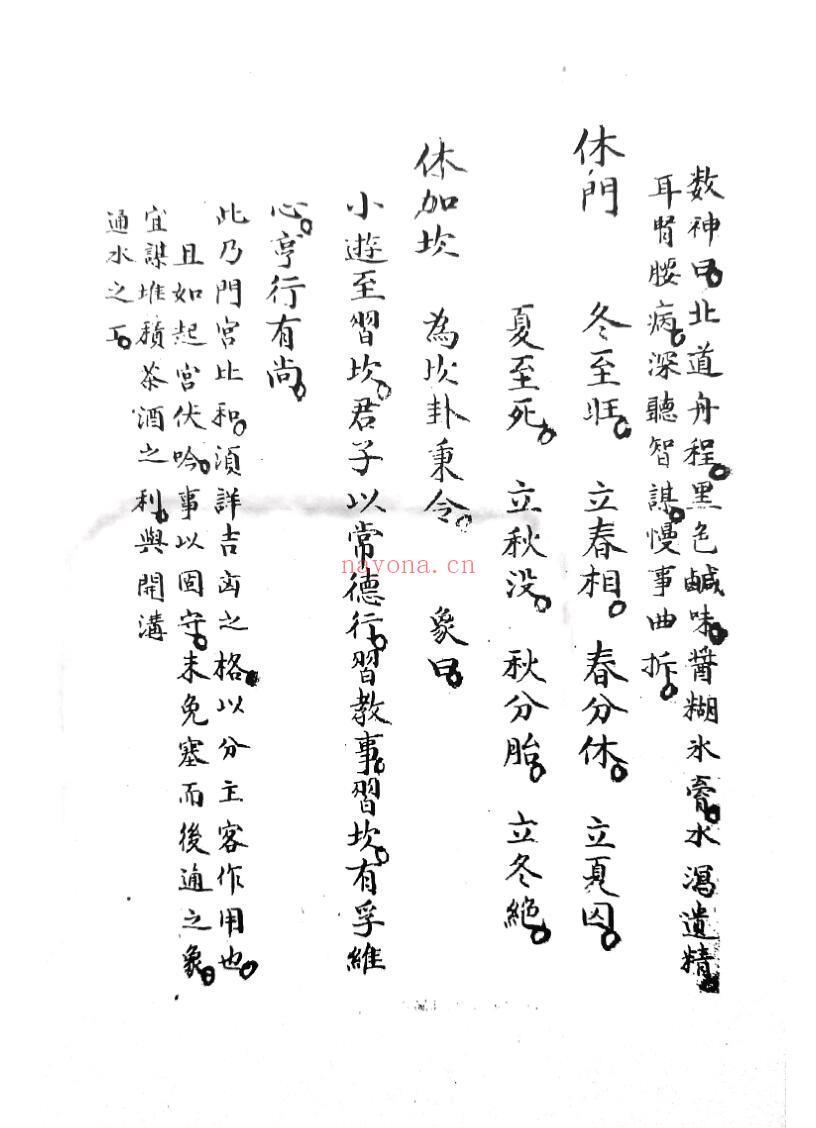 数神曰。北道舟程。黑色鹹味。醤糊氷膏。水瀉遺精。
耳腎腰病。深聽智謀。慢事曲折。
休門 冬至旺。 立春相。 春分休。 立夏囚。
夏至死。 立秋没。 秋分胎。 立冬絶。
休加坎 為坎卦秉令。 象曰。
小遊至習坎。君子以常德行。習教事。習坎。有孚維
心。亨行有尚。
此乃門宮比和。須詳吉凶之格。以分主客作用也。
且如起宮伏吟。事以固守。未免塞而後通之象。
宜謀堆積茶酒之利。與開溝
通水之工。
nayona.cn